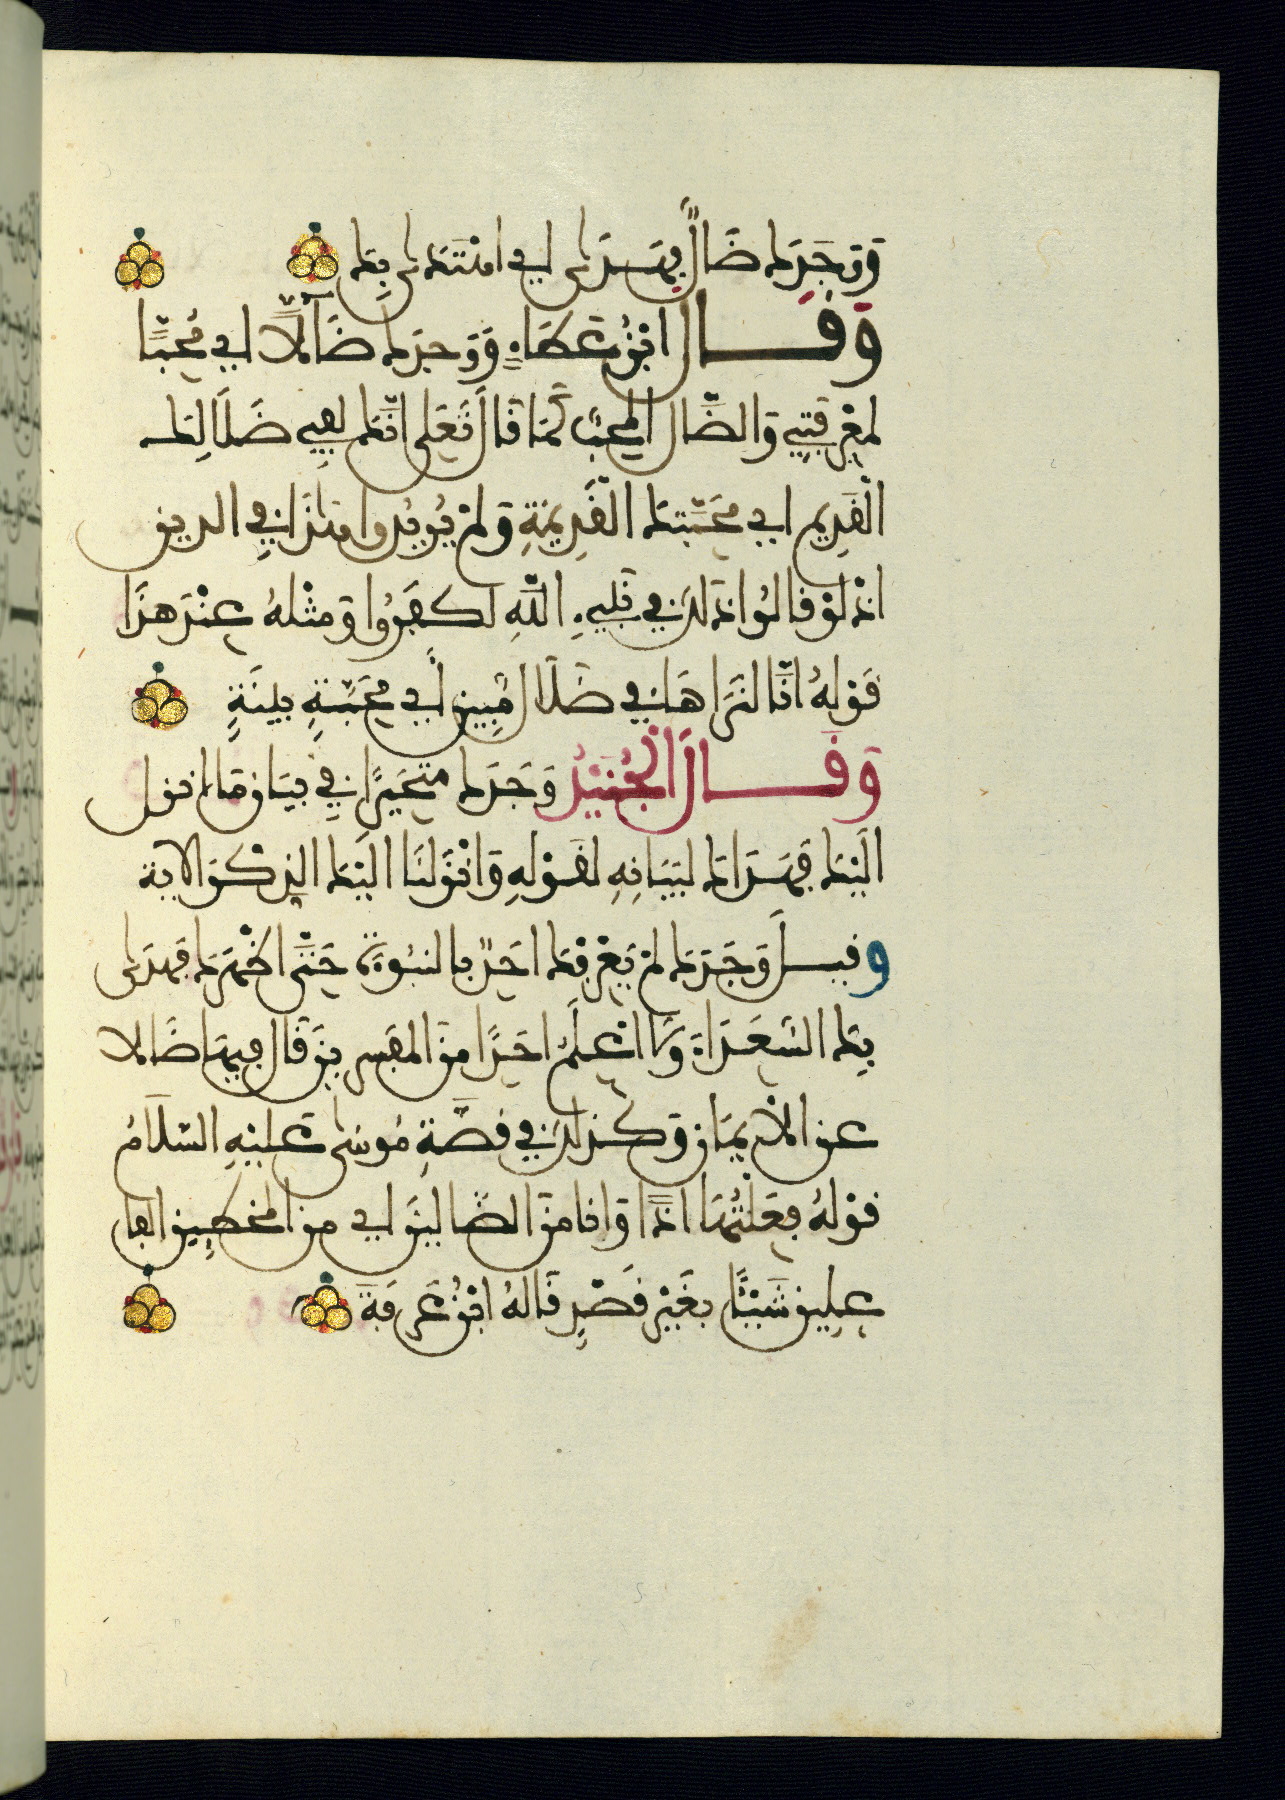 وَوَجَدَكَ ضَالٌّ فَهَدَى أي اهْتَدَى بِكَ
وَقَــالَ ابْنُ عَطَاءٍ وَوَجَدَكَ ضَآلًّا أي مُحِبًّا
لِمَعْرِفَتِي وَالضَّالُّ المُحِبُّ كَمَا قَالَ تَعَلَى انَّكَ لَفِي ضَلَالِكَ
الْقَدِيمِ اي مَحَبَّتِكَ الْقَدِيمَةِ وَلَمْ يُرِيدُوا هَاهُنَا فِي الدين
اذْ لَوْ قَالُوا ذَلِكَ فِي نَبِيِّ اللَّهِ لَكَفَرُوا وَمِثْلُهُ عِنْدَ هَذَا
قَوْلُهُ انَّا لَنَرَاهَا فِي ضَلَالٍ مُبِينٍ أَيْ مَحَبَّةٍ بَيِّنَةٍ
وَقَــالَ الْجُنَيْدُ وَجَدَكَ مُتَحَيِّرًا فِي بَيَانِ مَا انزل
الَيْكَ فَهَدَاكَ لِبَيَانِهِ لِقَوْلِهِ وَانْزَلْنَا الَيْكَ الذِّكْرَ الاية
وقيــلَ وَجَدَكَ لَمْ يَعْرِفْكَ احَدٌ بِالنُّبُوءَةِ حَتَّى اظْهَرَكَ فَهَدَى
بِكَ السُّعَدَاءَ وَلَا اعْلَمُ احَدًا مِنَ المُفَسِّرِينَ قَالَ فِيهَا ضَالا
عن الْايمَانِ وَكَذَلِكَ فِي قِصَّةِ مُوسَى عَلَيْهِ السَّلَامُ
قَوْلُهُ فَعَلْتُهَا اذًا وَانَا مِنَ الضَّالِّينَ اي من المخطئين الفا
علين شَيْئًا بِغَيْرِ قَصْدٍ قَالَهُ ابْنُ عَرَفَةَ